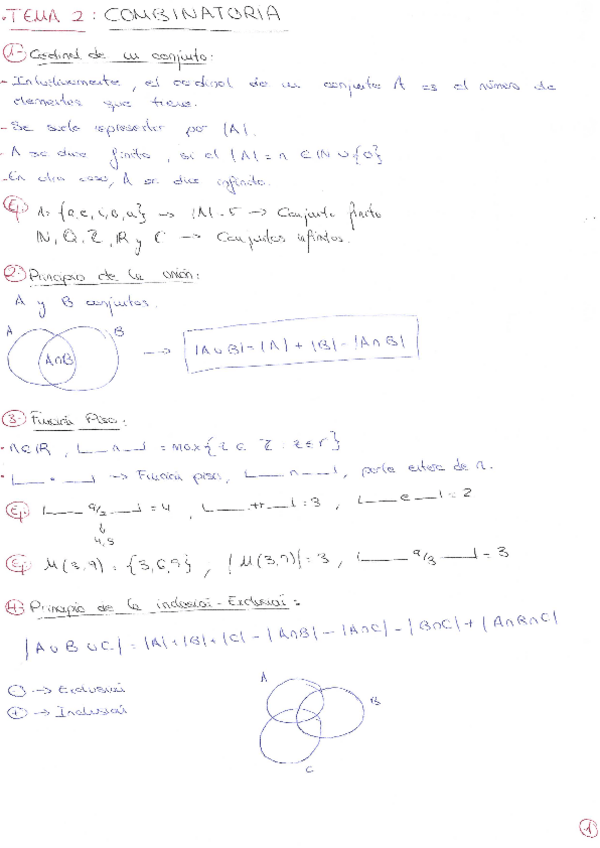 TEMA 2: COMBINATORIA
1- Cardinal de un conjunto:
- Intuitivamente, el cardinal de un conjunto A es el número de
elementos que tiene.
- Se suele representar por |A|.
- A se dice finito, si el |A| = n ∈ IN ∪ {0}
- En otro caso, A se dice infinito.
Ej: A= {a,e,i,o,u} → |A|=5 → Conjunto finito
N, Q, Z, R y C → Conjuntos infinitos.
2- Principio de la unión:
A y B conjuntos.
A B
A∩B → |A∪B| = |A| + |B| - |A∩B|
3- Función Piso:
- r∈R, |__r__| = max{z ∈ Z : z ≤ r}
· |__·__| → Función piso, |__r__|, parte entera de r.
Ej: |__9/2__| = 4, |__π__| = 3, |__e__| = 2
4,5
Ej: M(3,9) = {3,6,9}, |M(3,9)| = 3, |__9/3__| = 3
4- Principio de la inclusión-Exclusión:
|A∪B∪C| = |A|+|B|+|C| - |A∩B| - |A∩C| - |B∩C| + |A∩B∩C|
- → Exclusión
+ → Inclusión
A
B
C
1